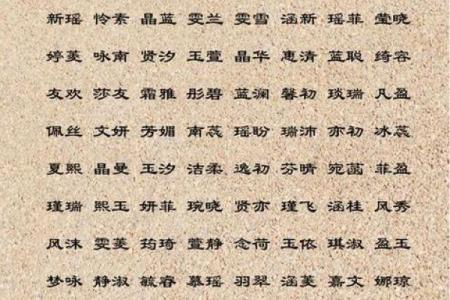 新瑶 怜素 晶蓝 雯兰 雯雪 涵新 瑶菲 莹晓
婷菱 咏南 贤汐 玉萱 晶华 惠清 蓝聪 绮容
友欢 莎友 霜雅 彤碧 蓝澜 馨初 琰瑞 凡盈
佩丝 文妍 芳媚 南蕊 瑶盼 瑞沛 亦初 冰蕊
夏熙 晶曼 玉汐 洁柔 逸初 芬晴 宛菡 菲盈
瑾瑞 熙玉 妍菲 琬晓 贤亦 瑾飞 涵桂 风秀
风沫 雯菱 筠琦 萱静 念荷 玉依 琪淑 盈玉
梦咏 静淑 毓睿 慕瑶 羽翠 涵菱 嘉文 娜琼